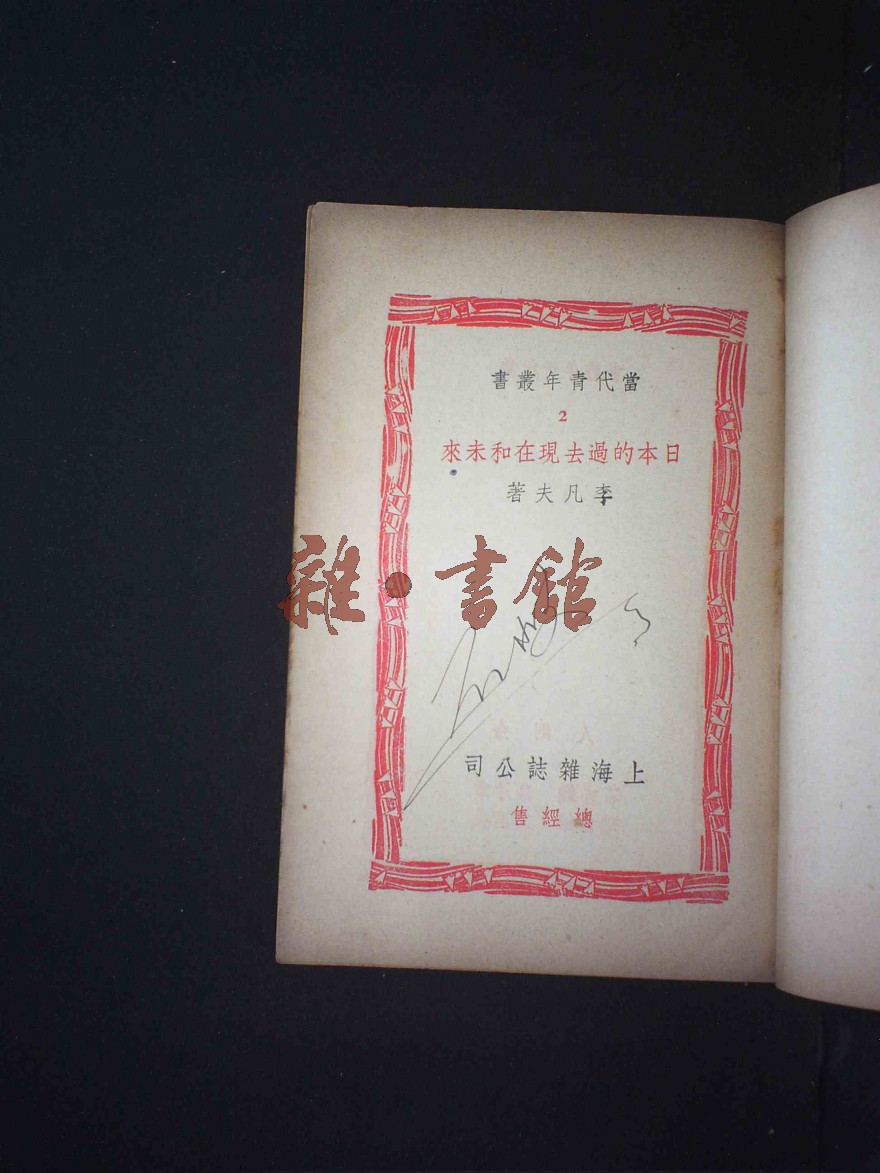 當代青年叢書
2
日本的過去現在和未來
李凡夫著
雜·書館
上海雜誌公司
總經售